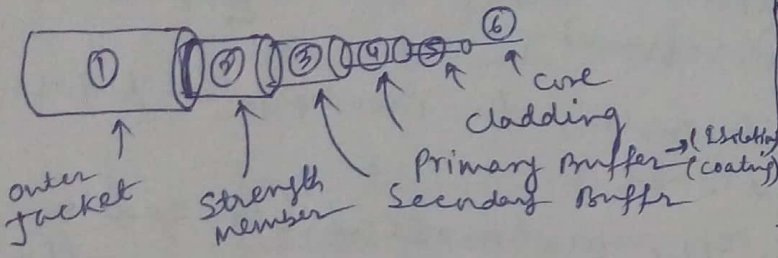 ①
②
③
④
⑤
⑥
core
cladding
Primary Buffer → (Isolating
(coating)
Secondary Buffer
Strength
member
outer
Jacket